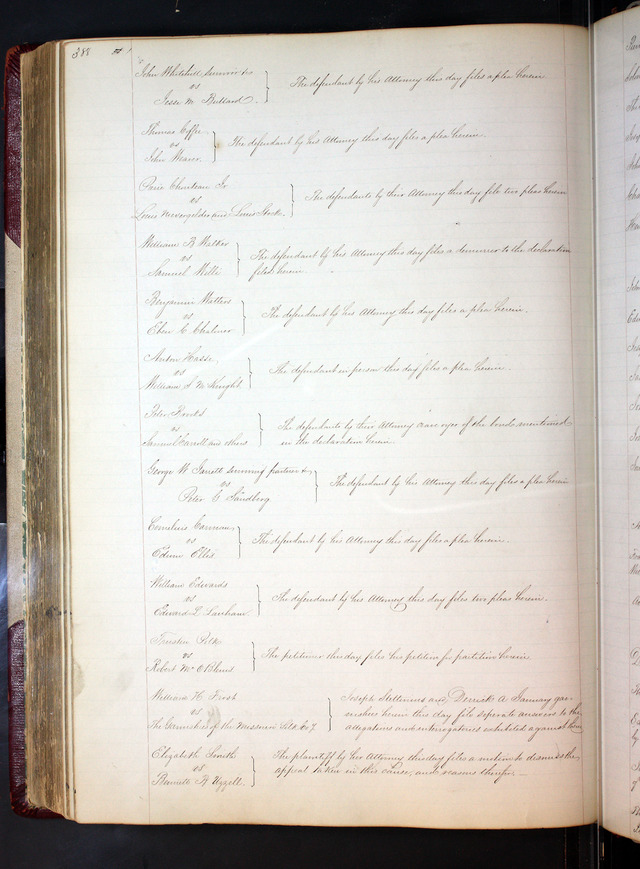 388
John Whitehill survivor &c
vs
Jesse M Bullard.
The defendant by his Attorney this day files a plea herein
Thomas Coffee
vs
John Weaver.
The defendant by his Attorney this day files a plea herein.
Chouteau Jr
vs
Louis and Louis
The defendants by their Attorney this day file two pleas herein
William B Walker
vs
Samuel
The defendant by his Attorney this day files a demurrer to the declaration
filed herein.
Benjamin Walters
vs
Eben C
The defendant by his Attorney this day files a plea herein.
Anton Hasse
vs
William S McKnight
The defendant in person this day files a plea herein.
Peter
vs
Samuel Carroll and others
The defendants by their Attorney crave oyer of the bonds mentioned
in the declaration herein.
George W Jarrott surviving partner &c
vs
Peter C Sandberg
The defendant by his Attorney this day files a plea herein
Cornelius
vs
Edwin Ellis
The defendant by his Attorney this day files a plea herein.
William Edwards
vs
Edward L
The defendant by his Attorney this day files two pleas herein.
Polk
vs
Robert Mc
The petitioner this day files his petition for partition herein
William H Frost
vs
The Garnishees of the
Joseph and Derrick A January gar-
nishees herein this day file seperate answers to the
allegations and interrogatories exhibited against them
Elizabeth Smith
vs
Bennett A Uzzell.
The plaintiff by his Attorney this day files a motion to dismiss the
appeal taken in this cause, and reasons therefor.